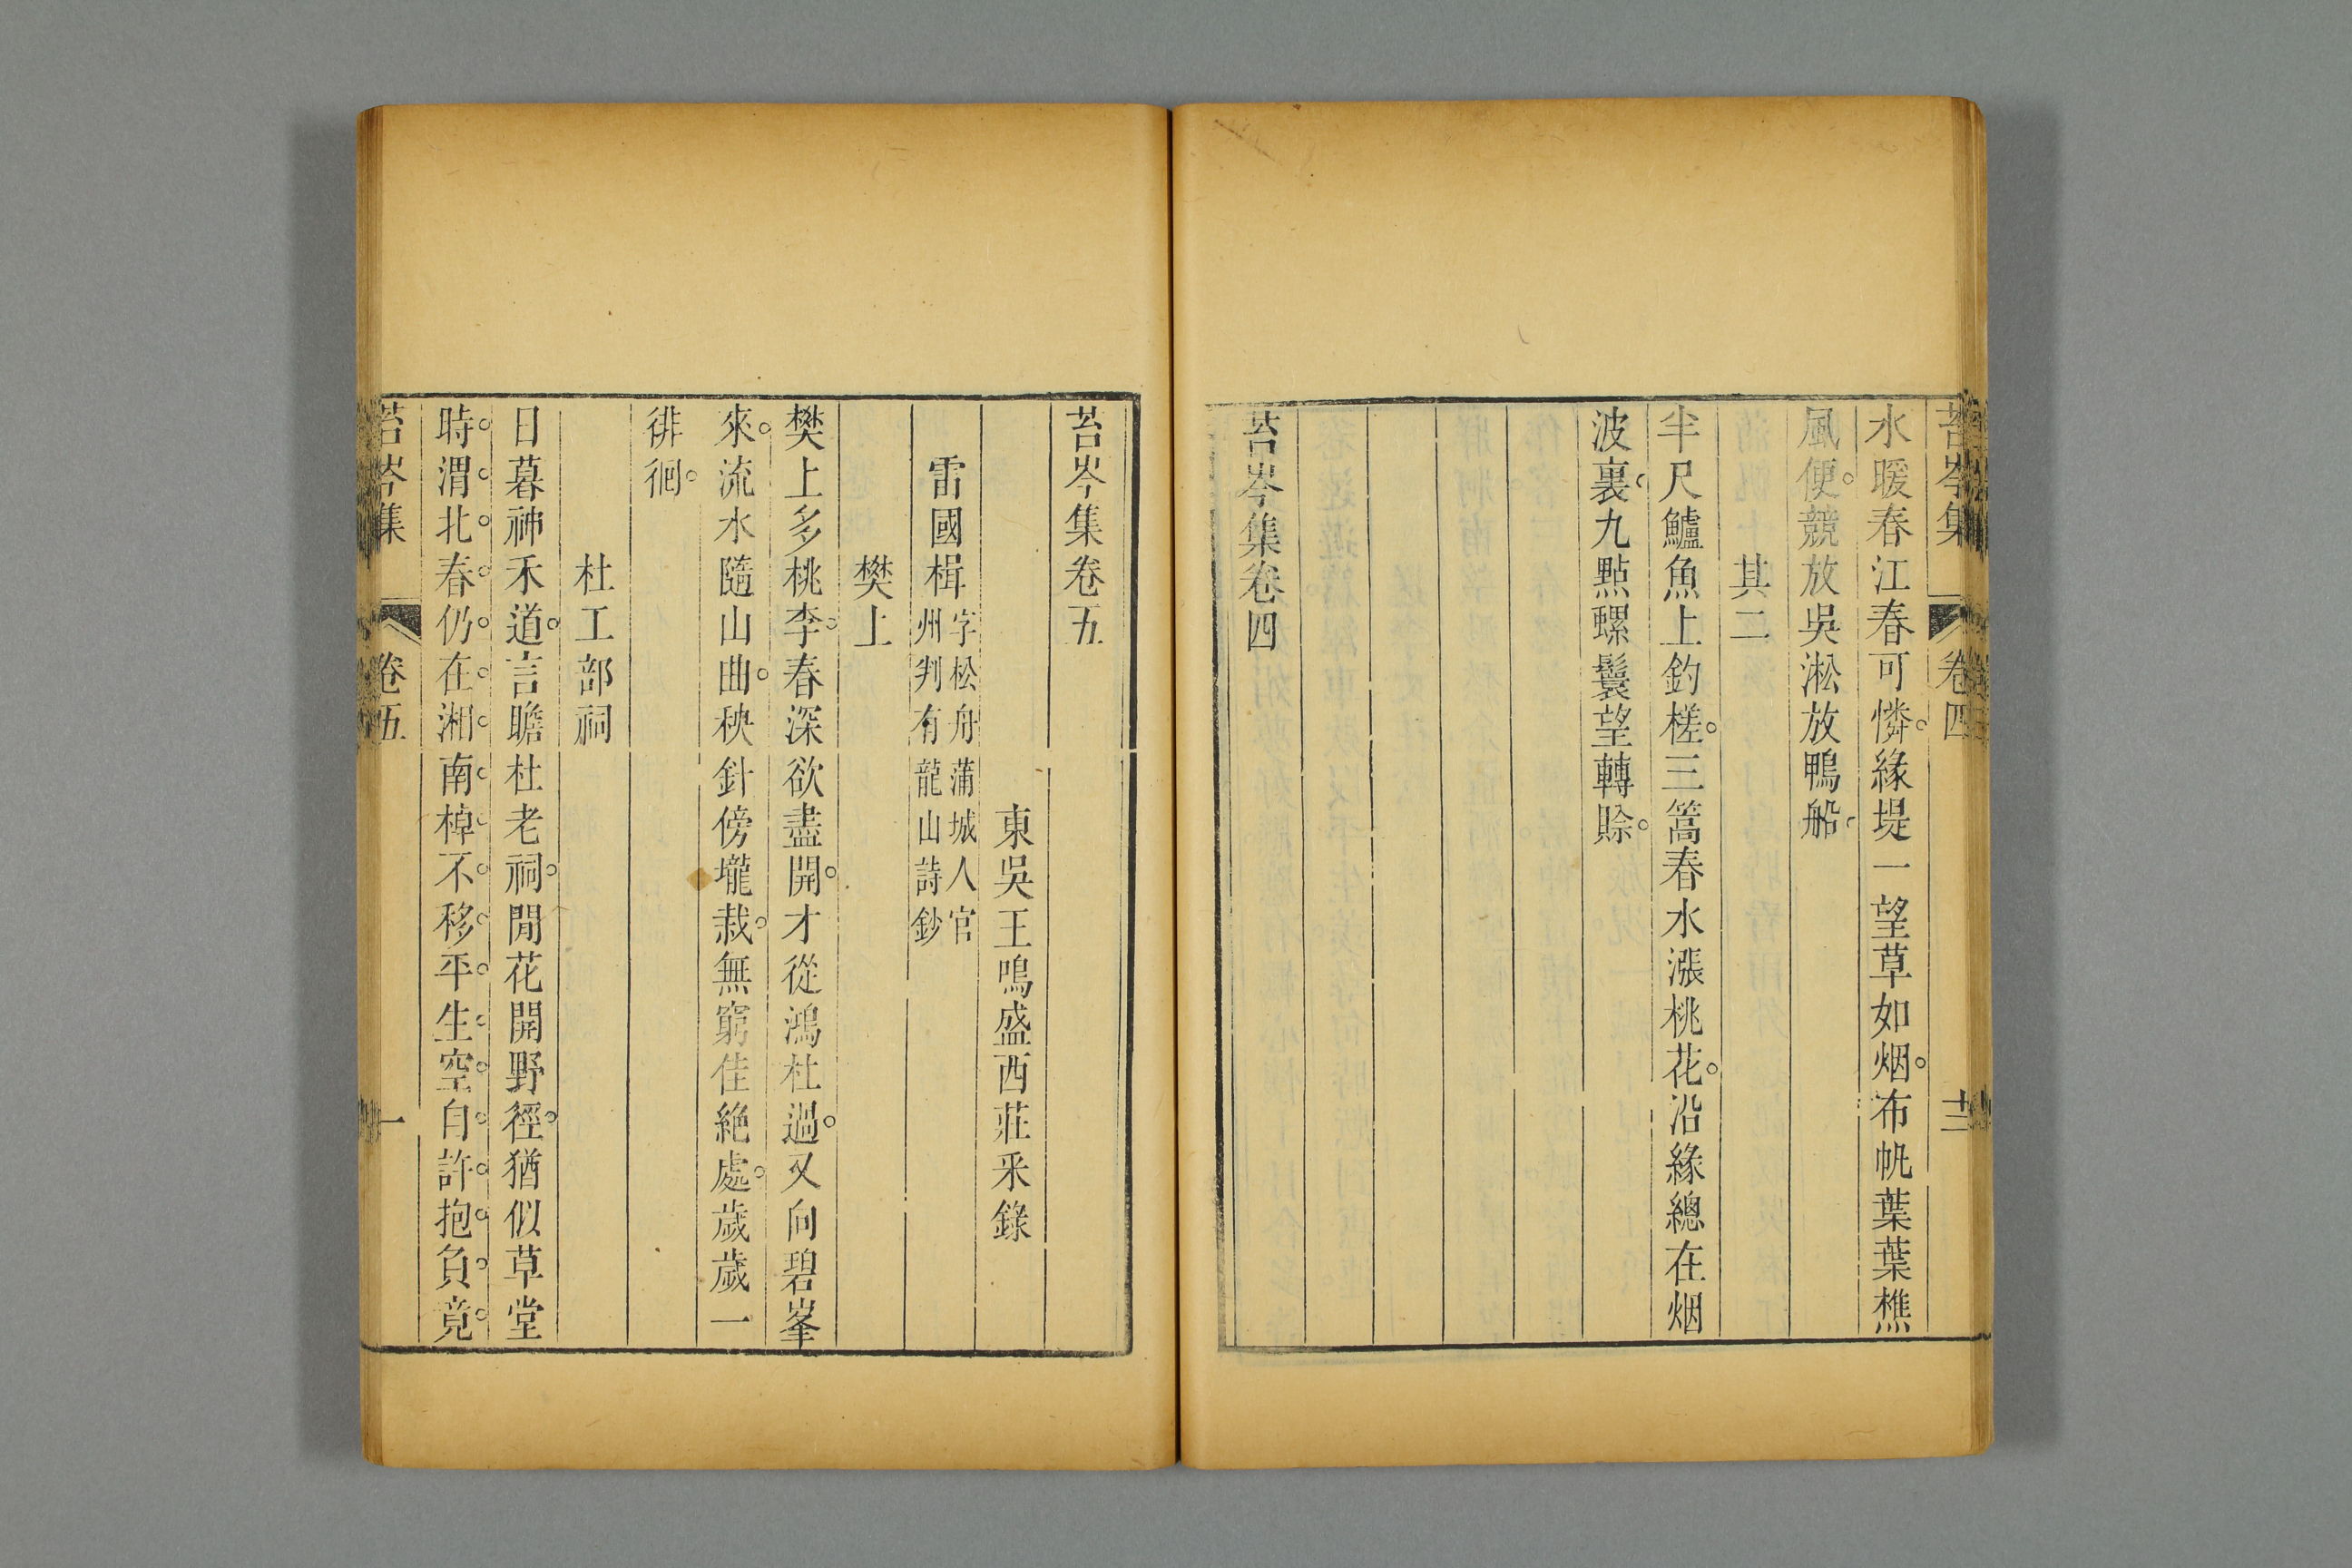 苔岑集
卷四
十三
水暖春江春可憐。緣堤一望草如烟。布帆葉葉樵
風便。競放吳淞放鴨船。
其二
半尺鱸魚上釣槎。三篙春水漲桃花。沿緣總在烟
波裏。九點螺鬟望轉賖。
苔岑集卷四
苔岑集卷五
東吳王鳴盛西莊采錄
雷國楫
字松舟蒲城人官
州判有龍山詩鈔
樊上
樊上多桃李。春深欲盡開。才從鴻杜過。又向碧峯
來。流水隨山曲。秧針傍壠栽。無窮佳絶處。歲歲一
徘徊。
杜工部祠
日暮神禾道。言瞻杜老祠。閒花開野徑。猶似草堂
時。渭。北。春。仍。在。湘。南。棹。不。移。平。生。空。自。許。抱。負。竟。
苔岑集
卷五
一